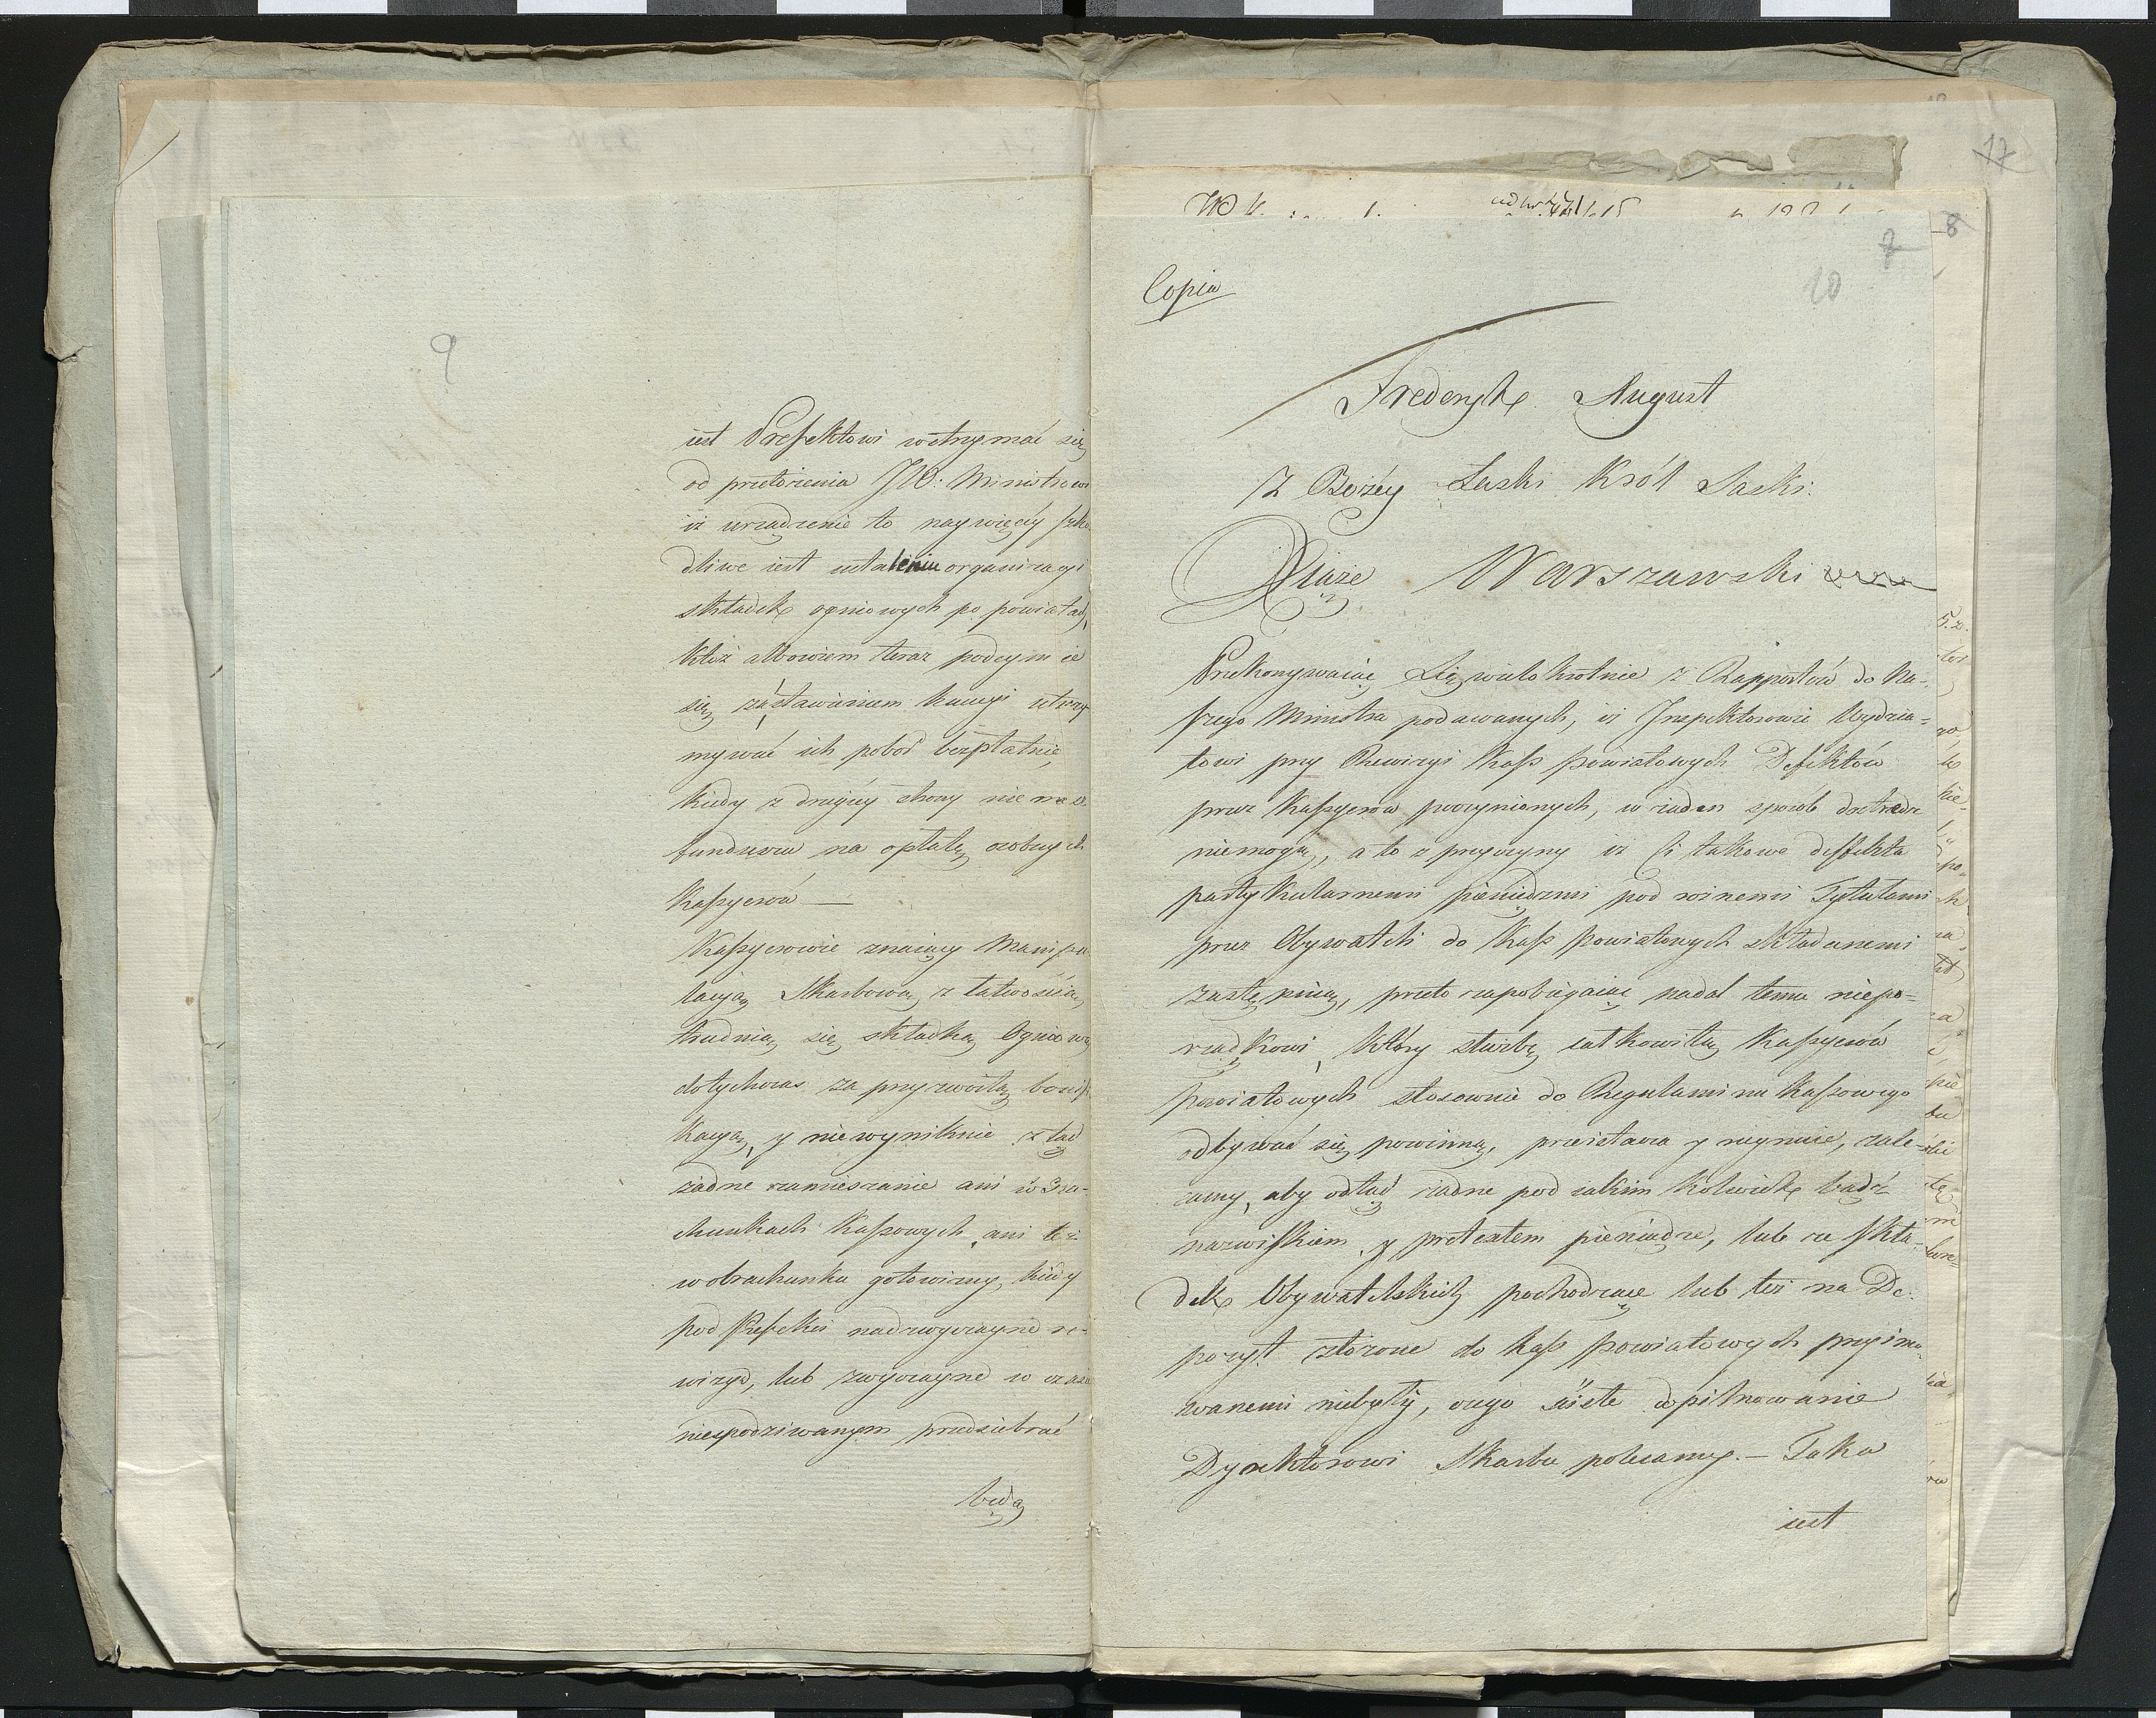 9
iest Prefektowi wstrzymać się
od przełożenia JW: Ministrowi
iż urządzenie to naywięcéy szko
dliwe iest ustaleniu organizacyi
składek ogniowych po powiatach,
któż albowiem teraz podeymie
się zastawieniem kaucyi utrzy
mywać ich pobór bezpłatnie,
kiedy z drugiéy strony nie ma
funduszu na opłatę osobnych
Kassyerów —
Kassyerowie znaiący Manipu
lacyą Skarbową z łatwością
trudnią się składką Ogniową
dotychczas za przyzwoitą bonifi
kacyą, y niewyniknie ztąd
żadne zamieszanie ani w Ra-
chunkach Kassowych, ani też
w obrachunku gotowizny, kiedy
pod Prefekci nadzwyczayne re-
wizye, lub zwyczayne w czasie
niespodziwanym przedsiebrać
będą
17
8
10
Copia
Frederyk August
Z Bożéy Łaski Król Saski.
Xiąże Warszawski
Przekonywaiąc Się wielokrotnie z Rapportów do Na-
szego Ministra podawanych, iż Inspektorowie Wydzia-
łowi przy Rewizyi Kass powiatowych Defektów
przez Kassyerów poczynionych, w żaden sposób dostrzedz
niemogą, a to z przyczyny iż Ci takowe deffekta
partykularnemi pieniędzmi pod innemi Tytułami
przez Obywateli do Kass powiatowych składanemi
zastępuią, przeto zapobiegaiąc nadal temu niepo-
rządkowi, który służbę całkowitą Kassyerów
powiatowych stosownie do Regulaminu Kassowego
odbywać się powinną, przeistacza y niymuie, zale-
camy, aby odtąd żadne pod iakim kolwiek bądź
nazwiskiem y pretextem pieniądze, lub ze skła-
dek Obywatelskich pochodzące lub też na De-
pozyt złożone do Kass powiatowych przyimo-
wanemi niebyły, czego ściste dopilnowanie
Dyrektorowi Skarbu polecamy. — Taka
iest